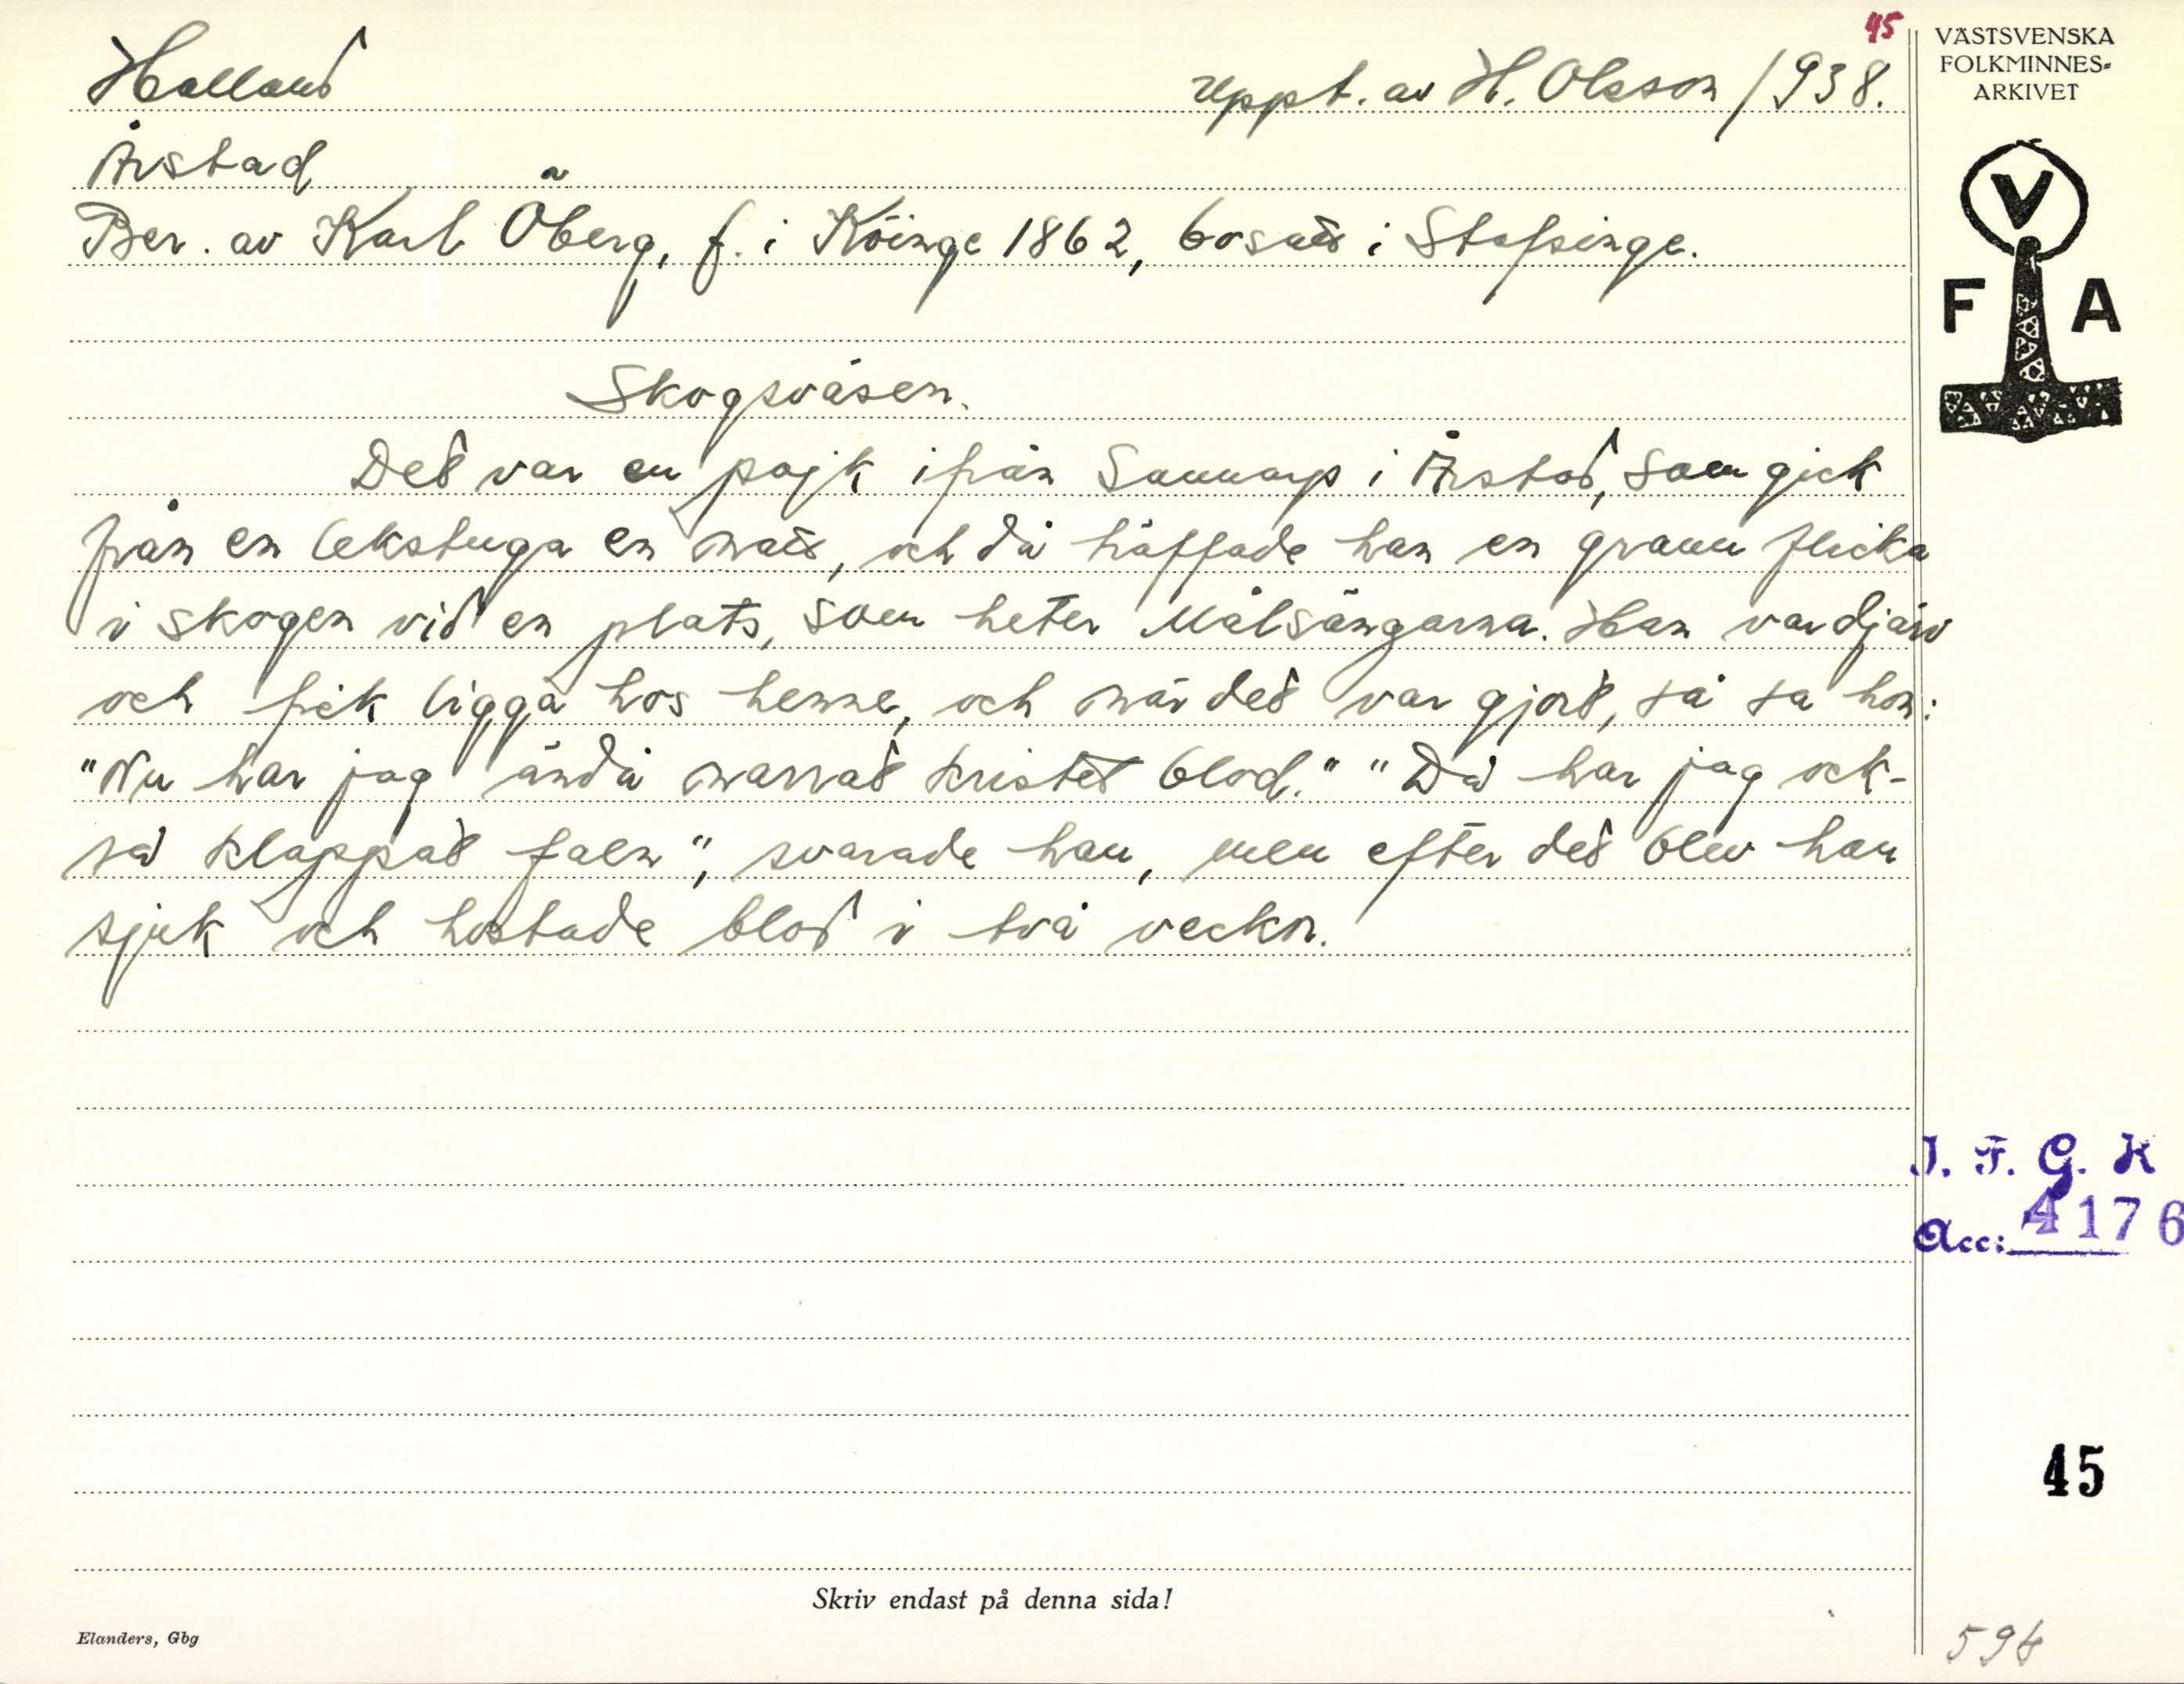 45
VÄSTSVENSKA
FOLKMINNES-
ARKIVET
Halland Uppt. av H. Olsson 1938.
Årstad
Ber. av Karl Öberg, f. i Köinge 1862, bosatt i Stafsinge.
V
F A
Skogsväsen.
Det var en pojk ifrån Sannarp i Årstad, som gick
från en lekstuga en natt, och då träffade han en grann flicka
i skogen vid en plats, som heter Målsängarna. Han var djärv
och fick ligga hos henne, och när det var gjort, så sa hon:
"Nu har jag ändå narrat kristet blod." "Då har jag ock-
så klappat faen", svarade han, men efter det blev han
sjuk och hostade blod i två veckor.
I. F. G. H
Acc: 4176
45
Skriv endast på denna sida!
Elanders, Gbg